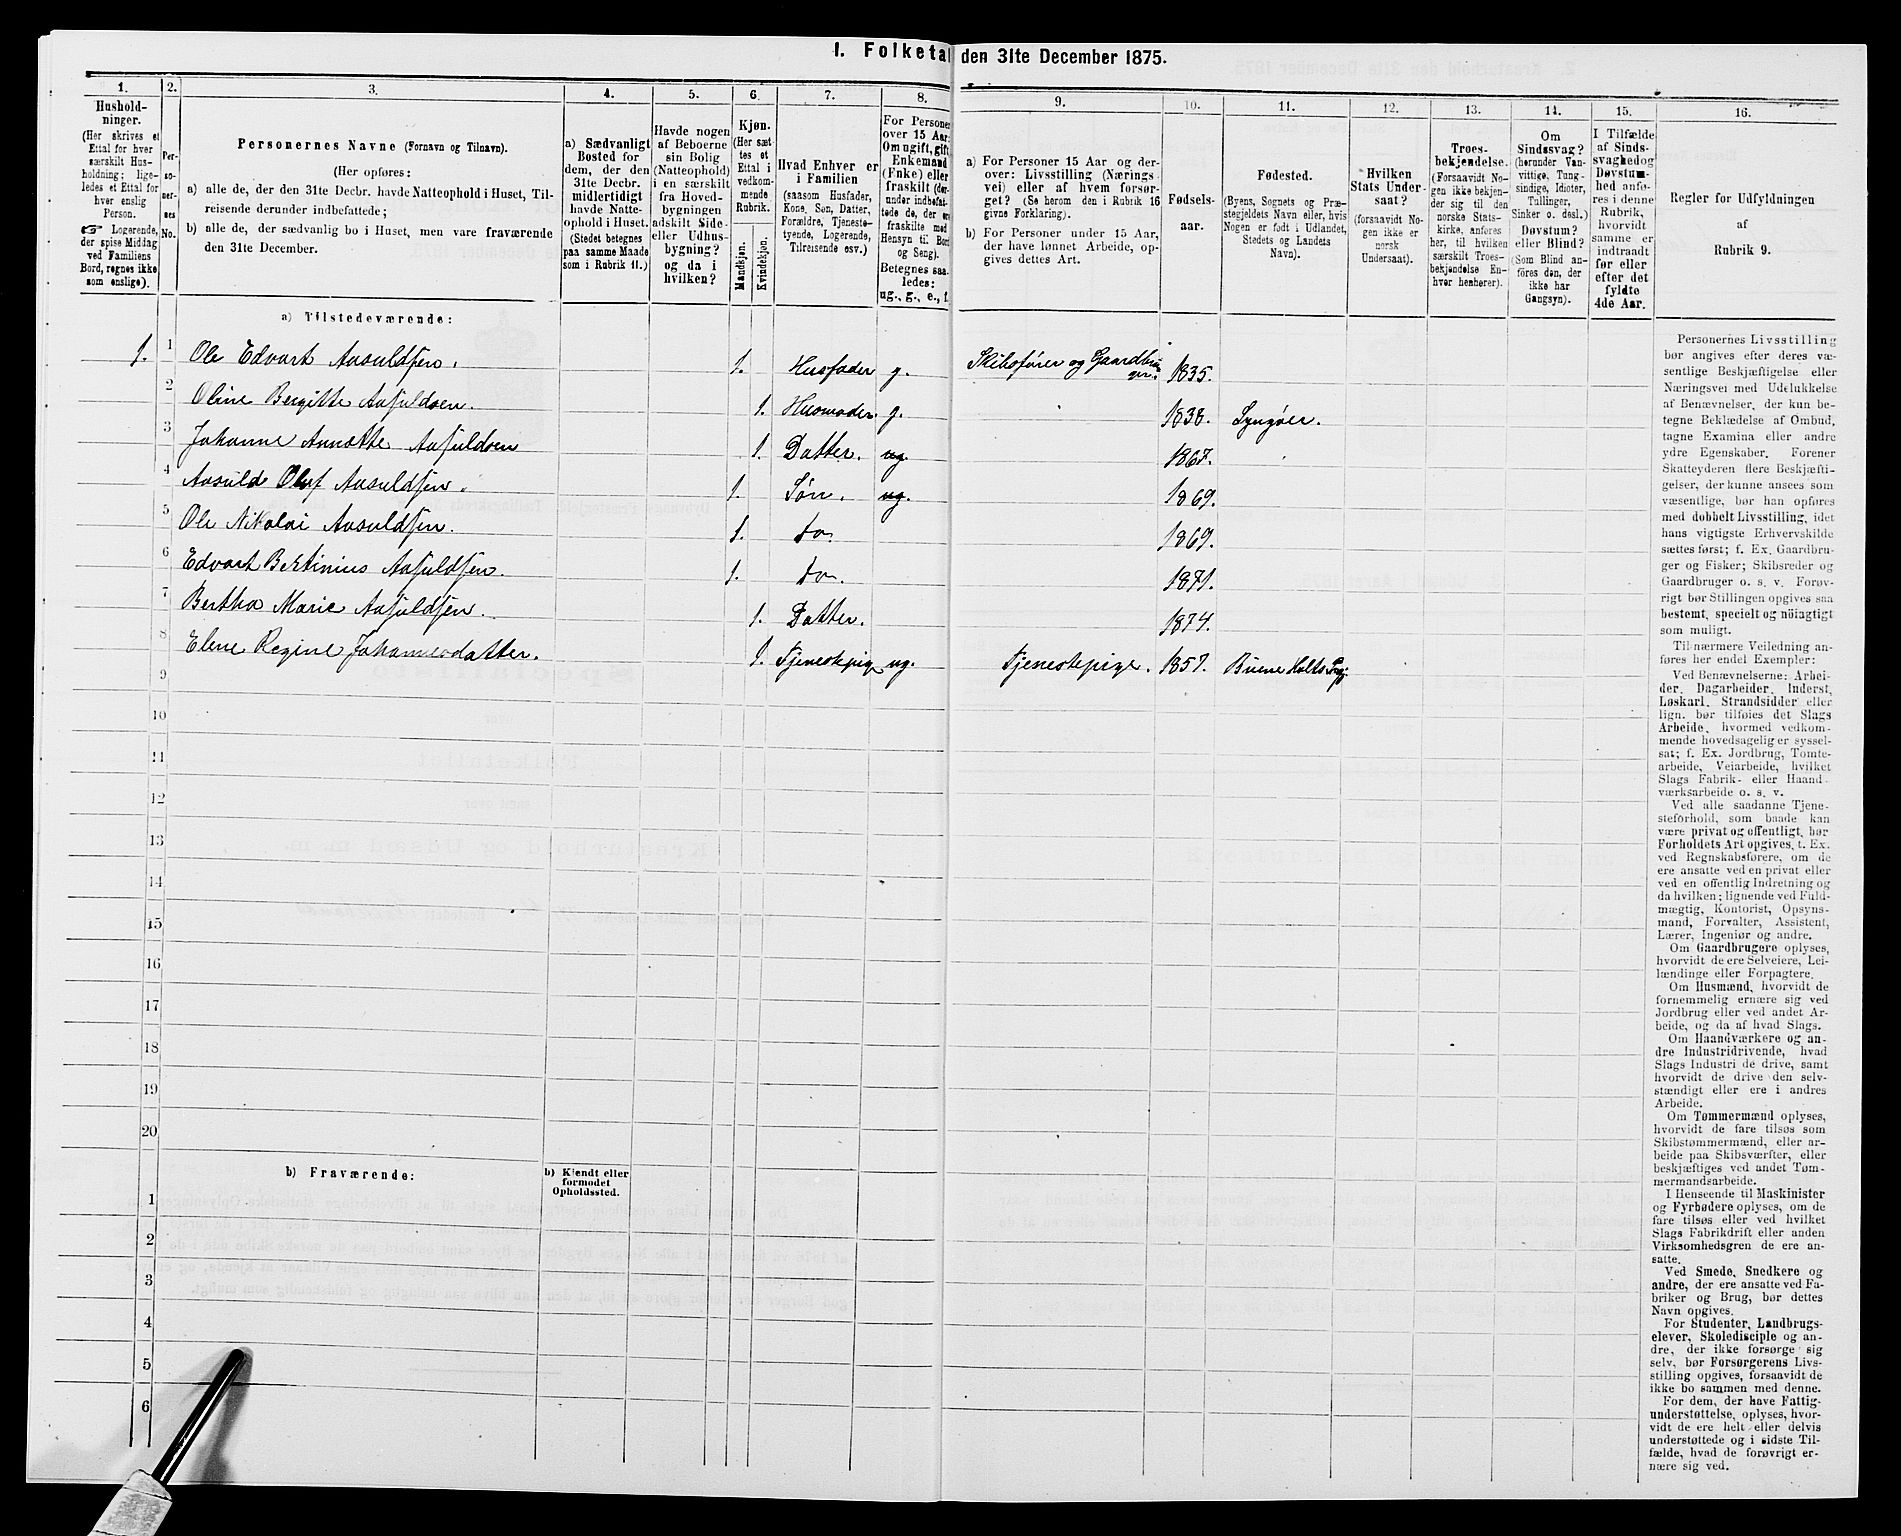 1. Folketal den 31te December 1875.
1.
Hushold-
ninger.
(Her skrives et
Ettal for hver
særskilt Hus-
holdning; lige-
ledes et Ettal for
hver enslig
Person.
☞ Logerende,
der spise Middag
ved Familiens
Bord, regnes ikke
som enslige).
2.
Per-
so-
ner-
nes
No.
3.
Personernes Navne (Fornavn og Tilnavn).
(Her opføres:
a) alle de, der den 31te Decbr. havde Natteophold i Huset, Til-
reisende derunder indbefattede;
b) alle de, der sædvanlig bo i Huset, men vare fraværende
den 31te December.
4.
a) Sædvanligt
Bosted for
dem, der den
31te Decbr.
midlertidigt
havde Natte-
ophold i Huset.
(Stedet betegnes
paa samme Maade
som i Rubrik 11.)
5.
Havde nogen
af Beboerne
sin Bolig
(Natteophold)
i en særskilt
fra Hoved-
bygningen
adskilt Side-
eller Udhus-
bygning?
og da i
hvilken?
6.
Kjøn.
(Her sæt-
tes et
Ettal i
vedkom-
mende
Rubrik.
Mandkjøn.
Kvindekjøn.
7.
Hvad Enhver er
i Familien
(saasom Husfader,
Kone, Søn, Datter,
Forældre, Tjeneste-
tyende, Logerende,
Tilreisende osv.)
8.
For Personer
over 15 Aar:
Om ugift, gift,
Enkemand
(Enke) eller
fraskilt (der-
under indbefat-
tede de, der ere
fraskilte med
Hensyn til Bord
og Seng).
Betegnes saa-
ledes:
ug., g., e., f.
9.
a) For Personer 15 Aar og der-
over: Livsstilling (Nærings-
vei) eller af hvem forsør-
get? (Se herom den i Rubrik 16
givne Forklaring).
b) For Personer under 15 Aar,
der have lønnet Arbeide, op-
gives dettes Art.
10.
Fødsels-
aar.
11.
Fødested.
(Byens, Sognets og Præ-
stegjeldets Navn eller, hvis
Nogen er født i Udlandet,
Stedets og Landets
Navn).
12.
Hvilken
Stats Under-
saat?
(forsaavidt No-
gen ikke er
norsk
Undersaat).
13.
Troes-
bekjendelse.
(Forsaavidt No-
gen ikke bekjen-
der sig til den
norske Stats-
kirke, anføres
her, til hvilken
særskilt Troes-
bekjendelse En-
hver henhører).
14.
Om
Sindssvag?
(herunder Van-
vittige, Tung-
sindige, Idioter,
Tullinger,
Sinker o. desl.)
Døvstum?
eller Blind?
(Som Blind an-
føres den, der
ikke har
Gangsyn).
15.
I Tilfælde
af Sinds-
svaghed og
Døvstum-
hed anfø-
res i denne
Rubrik,
hvorvidt
samme er
indtraadt
før eller
efter det
fyldte
4de Aar.
16.
Regler for Udfyldningen
af
Rubrik 9.
a) Tilstedeværende:
1. 1 Ole Edvart Aasuldsen. 1. Husfader g. Skibsfører og Gaardbru- 1835.
ger.
2 Oline Bergitte Aasuldsen. 1. Husmoder. g. 1838. Lyngøer.
3 Johanne Annette Aasuldsen 1. Datter. ug. 1867.
4 Aasuld Oluf Aasuldsen. 1. Søn. ug. 1869.
5 Ole Nikolai Aasuldsen. 1. do 1869.
6 Edvart Bertinius Aasuldsen. 1. do. 1871.
7 Bertha Marie Aasuldsen. 1. Datter. 1874.
8 Elene Regine Johannesdatter. 1. Tjenestepige ug. Tjenestepige. 1857. Holts
9
10
11
12
13
14
15
16
17
18
19
20
b) Fraværende:
b) Kjendt eller
formodet
Opholdssted.
1
2
3
4
5
6
Personernes Livsstilling
bør angives efter deres væ-
sentlige Beskjæftigelse eller
Næringsvei med Udelukkelse
af Benævnelser, der kun be-
tegne Beklædelse af Ombud,
tagne Examina eller andre
ydre Egenskaber. Forener
Skatteyderen flere Beskjæfti-
gelser, der kunne ansees som
væsentlige, bør han opføres
med dobbelt Livsstilling, idet
hans vigtigste Erhvervskilde
sættes først; f. Ex. Gaardbru-
ger og Fisker; Skibsreder og
Gaardbruger o. s. v. Forøv-
rigt bør Stillingen opgives saa
bestemt, specielt og nöiagtigt
som muligt.
Til nærmere Veiledning an-
føres her endel Exempler:
Ved Benævnelserne: Arbei-
der, Dagarbeider, Inderst,
Løskarl, Strandsidder eller
lign. bør tilføies det Slags
Arbeide, hvormed vedkom-
mende hovedsagelig er syssel-
sat; f. Ex. Jordbrug, Tomte-
arbeide, Veiarbeide, hvilket
Slags Fabrik- eller Haand-
værksarbeide o. s. v.
Ved alle saadanne Tjene-
steforhold, som baade kan
være privat og offentligt, bør
Forholdets Art opgives, t. Ex.
ved Regnskabsførere, om de
ere ansatte ved en privat eller
ved en offentlig Indretning og
da hvilken; lignende ved Fuld-
mægtig, Kontorist, Opsyns-
mand, Forvalter, Assistent,
Lærer, Ingeniør og andre.
Om Gaardbrugere oplyses,
hvorvidt de ere Selveiere, Lei-
lændinge eller Forpagtere.
Om Husmænd, hvorvidt de
fornemmelig ernære sig ved
Jordbrug eller ved andet Ar-
beide, og da af hvad Slags.
Om Haandværkere og an-
dre Industridrivende, hvad
Slags Industri de drive, samt
hvorvidt de drive den selv-
stændigt eller ere i andres
Arbeide.
Om Tømmermænd oplyses,
hvorvidt de fare tilsøs som
Skibstømmermænd, eller ar-
beide paa Skibsværfter, eller
beskjæftiges ved andet Tøm-
mermandsarbeide.
I Henseende til Maskinister
og Fyrbødere oplyses, om de
fare tilsøs eller ved hvilket
Slags Fabrikdrift eller anden
Virksomhedsgren de ere an-
satte.
Ved Smede, Snedkere og
andre, der ere ansatte ved Fa-
briker og Brug, bør dettes
Navn opgives.
For Studenter, Landbrugs-
elever, Skoledisciple og an-
dre, der ikke forsørge sig
selv, bør Forsørgerens Livs-
stilling opgives, forsaavidt de
ikke bo sammen med denne.
For dem, der have Fattig-
understøttelse, oplyses, hvor-
vidt de ere helt eller delvis
understøttede og i sidste Til-
fælde, hvad de forøvrigt er-
nære sig ved.